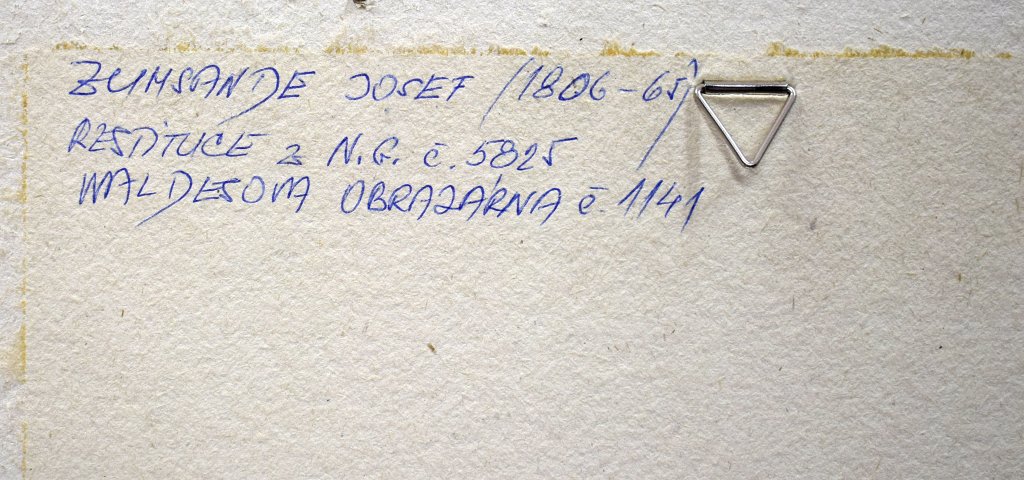 ZUMSANDE JOSEF (1806-65)
RESTITUCE z N.G. č. 5825
WALDESOVA OBRAZÁRNA č. 1141